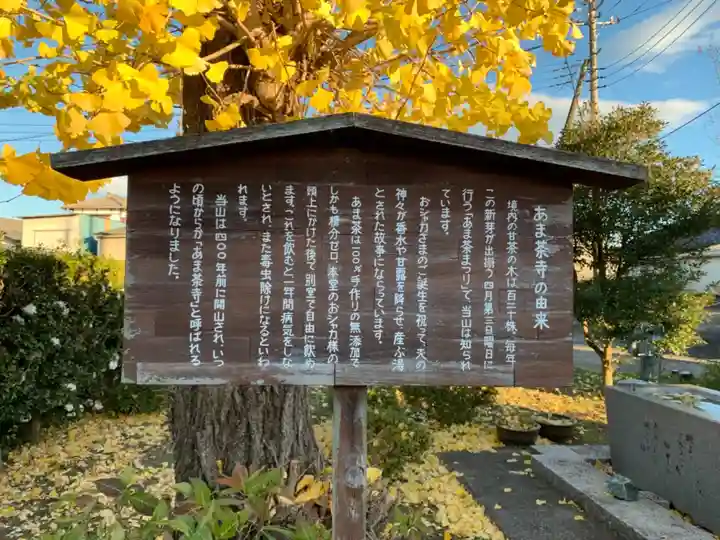 あま茶寺の由来
境内の甘茶の木は百三十株、毎年
この新芽が出揃う四月第三日曜日に
行う「あま茶まつり」で、当山は知られ
ています。
おシャカさまのご誕生を祝って、天の
神々が香水や甘露を降らせ、産ぶ湯
とされた故事にならっています。
あま茶は一〇〇%手作りの無添加で
しかも糖分ゼロ。本堂のおシャカ様の
頭上にかけた後で、別室で自由に飲め
ます。これを飲むと一年間病気をしな
いとされ、また毒虫除けになるといわ
れます。
当山は四〇〇年前に開山され、いつ
の頃からか「あま茶寺」と呼ばれる
ようになりました。